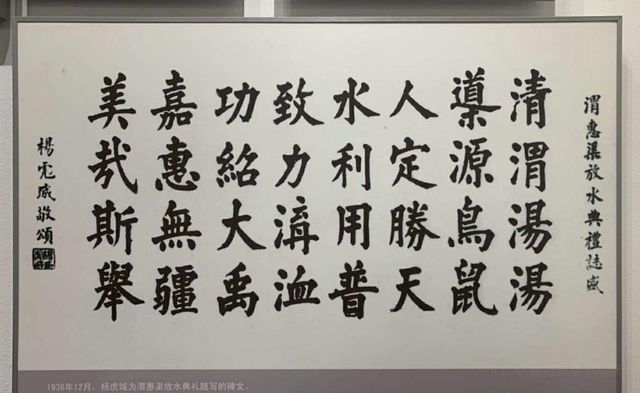 渭惠渠放水典禮誌盛
清渭湯湯
導源鳥鼠
人定勝天
水利用普
致力溝洫
功紹大禹
嘉惠無疆
美哉斯舉
楊虎城敬頌
1936年12月，杨虎城为渭惠渠放水典礼题写的碑文。